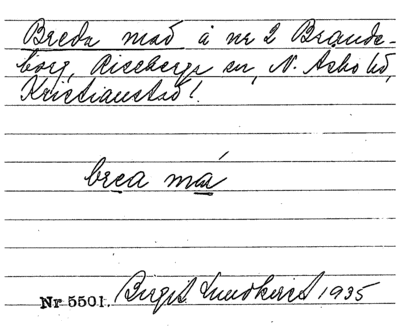 Breda mad å nr 2 Brända-
borg, Riseberga sn, N. Åsbo hd,
Kristianstad l.
brea má
Nr 5501. Birgit Lundkvist 1935